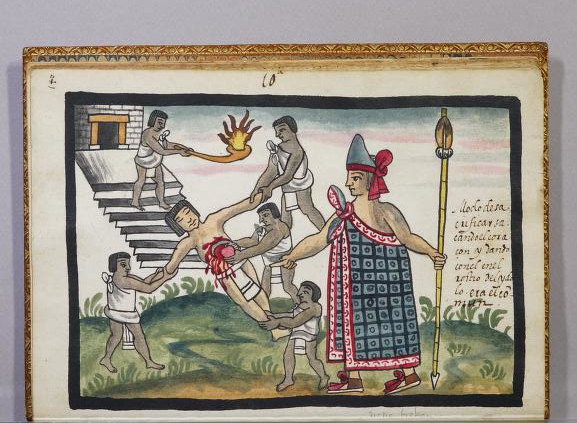 Modo de sa
crificar, sa
cãdo el cora
con y dando
con el en el
rostro del ydo
lo. era el co
mun